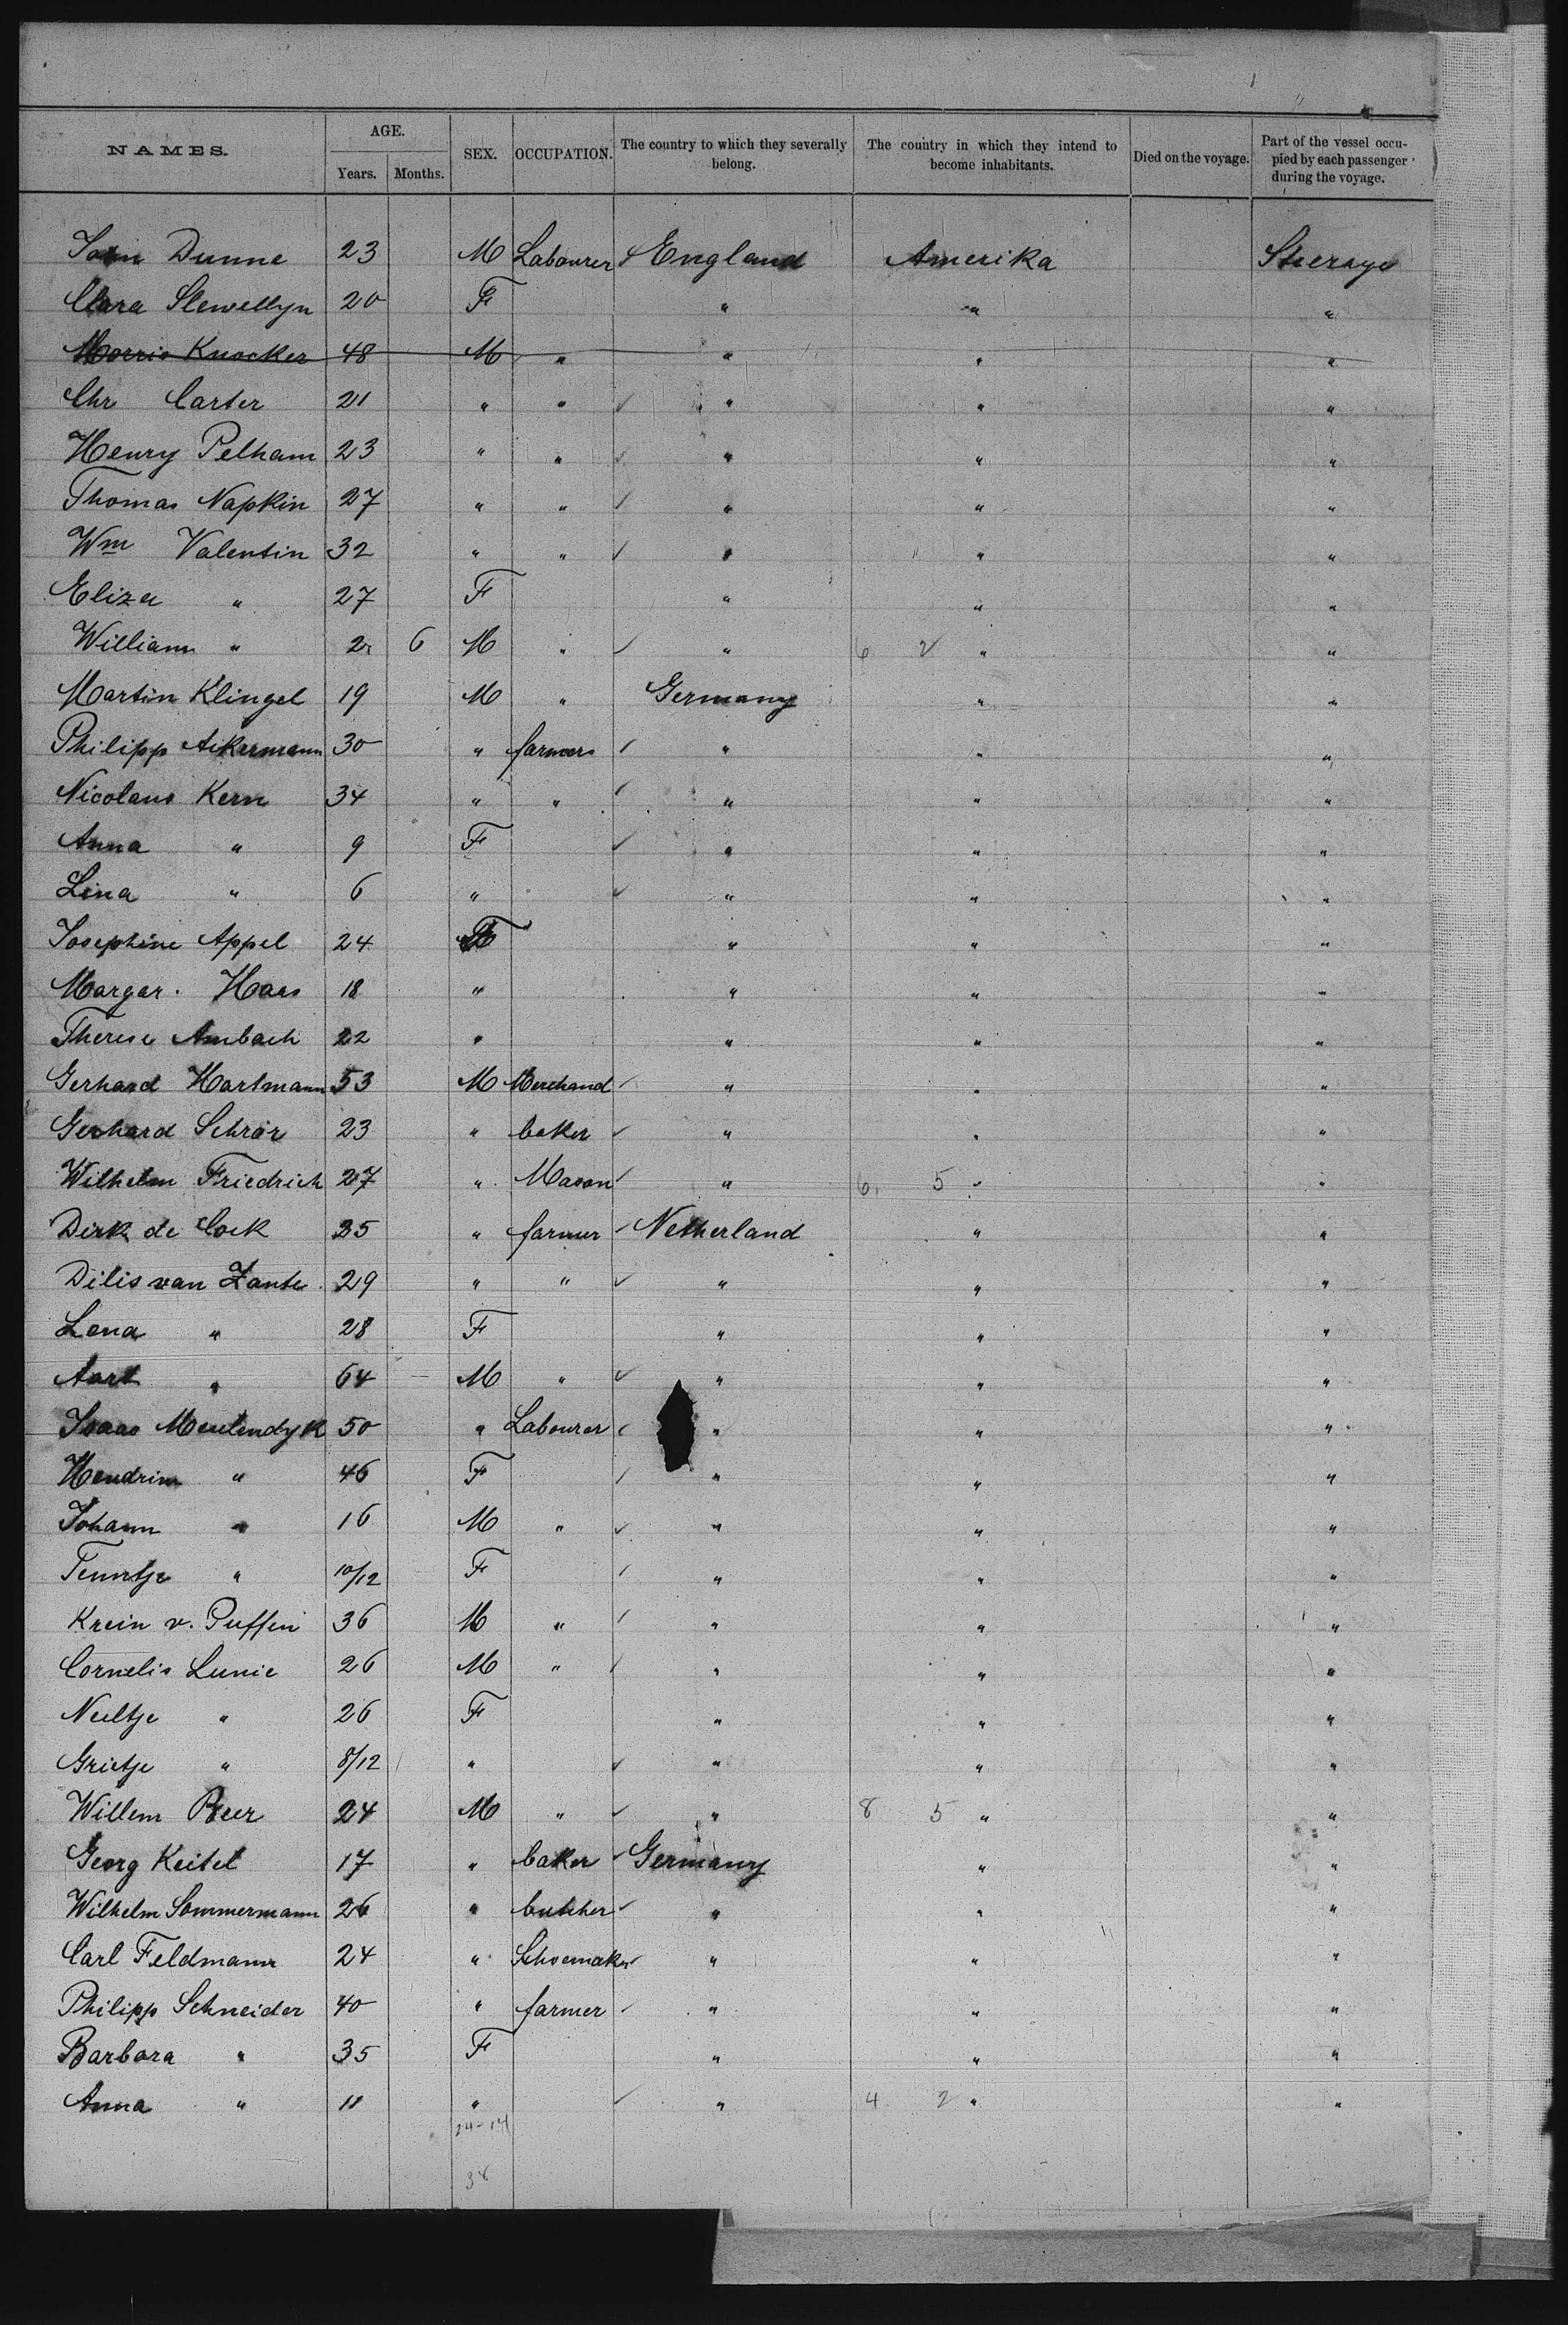 NAMES. AGE. Years. Months. SEX. OCCUPATION. The country to which they severally belong. The country in which they intend to become inhabitants. Died on the voyage. Part of the vessel occupied by each passenger during the voyage.
John Dunne 23 M Labourer England Amerika Steerage
Clara Llewellyn 20 F " " "
Morris Knocker 48 M " " " "
Chr Carter 21 " " " " "
Henry Pelham 23 " " " " "
Thomas Napkin 27 " " " " "
Wm Valentin 32 " " " " "
Eliza " 27 F " " "
William " 2 6 M " " 6 2 " "
Martin Klingel 19 M " Germany " "
Philipp Aikermann 30 " farmers " " "
Nicolaus Kern 34 " " " " "
Anna " 9 F " " "
Lina " 6 " " " "
Josephine Appel 24 F " " "
Margar. Haas 18 " " " "
Therese Ambach 22 " " " "
Gerhard Hartmann 53 M Merchand " " "
Gerhard Schrör 23 " baker " " "
Wilhelm Friedrich 27 " Mason " 6 5 " "
Dirk de Cock 35 " farmer Netherland " "
Dilis van Zante 29 " " " " "
Lena " 28 F " " "
Aart " 64 M " " " "
Isaac Meulendyk 50 " Labourer " " "
Hendrina " 46 F " " "
Johann " 16 M " " " "
Teuntje " 10/12 F " " "
Krein v. Puffen 36 M " " " "
Cornelis Lunie 26 M " " " "
Neeltje " 26 F " " "
Grietje " 8/12 " " " "
Willem Beer 24 M " " 8 5 " "
Georg Keitel 17 " baker Germany " "
Wilhelm Sommermann 26 " butcher " " "
Carl Feldmann 24 " Schoemaker " " "
Philipp Schneider 40 " farmer " " "
Barbara " 35 F " " "
Anna " 11 " " 4 2 " "
24-14
38